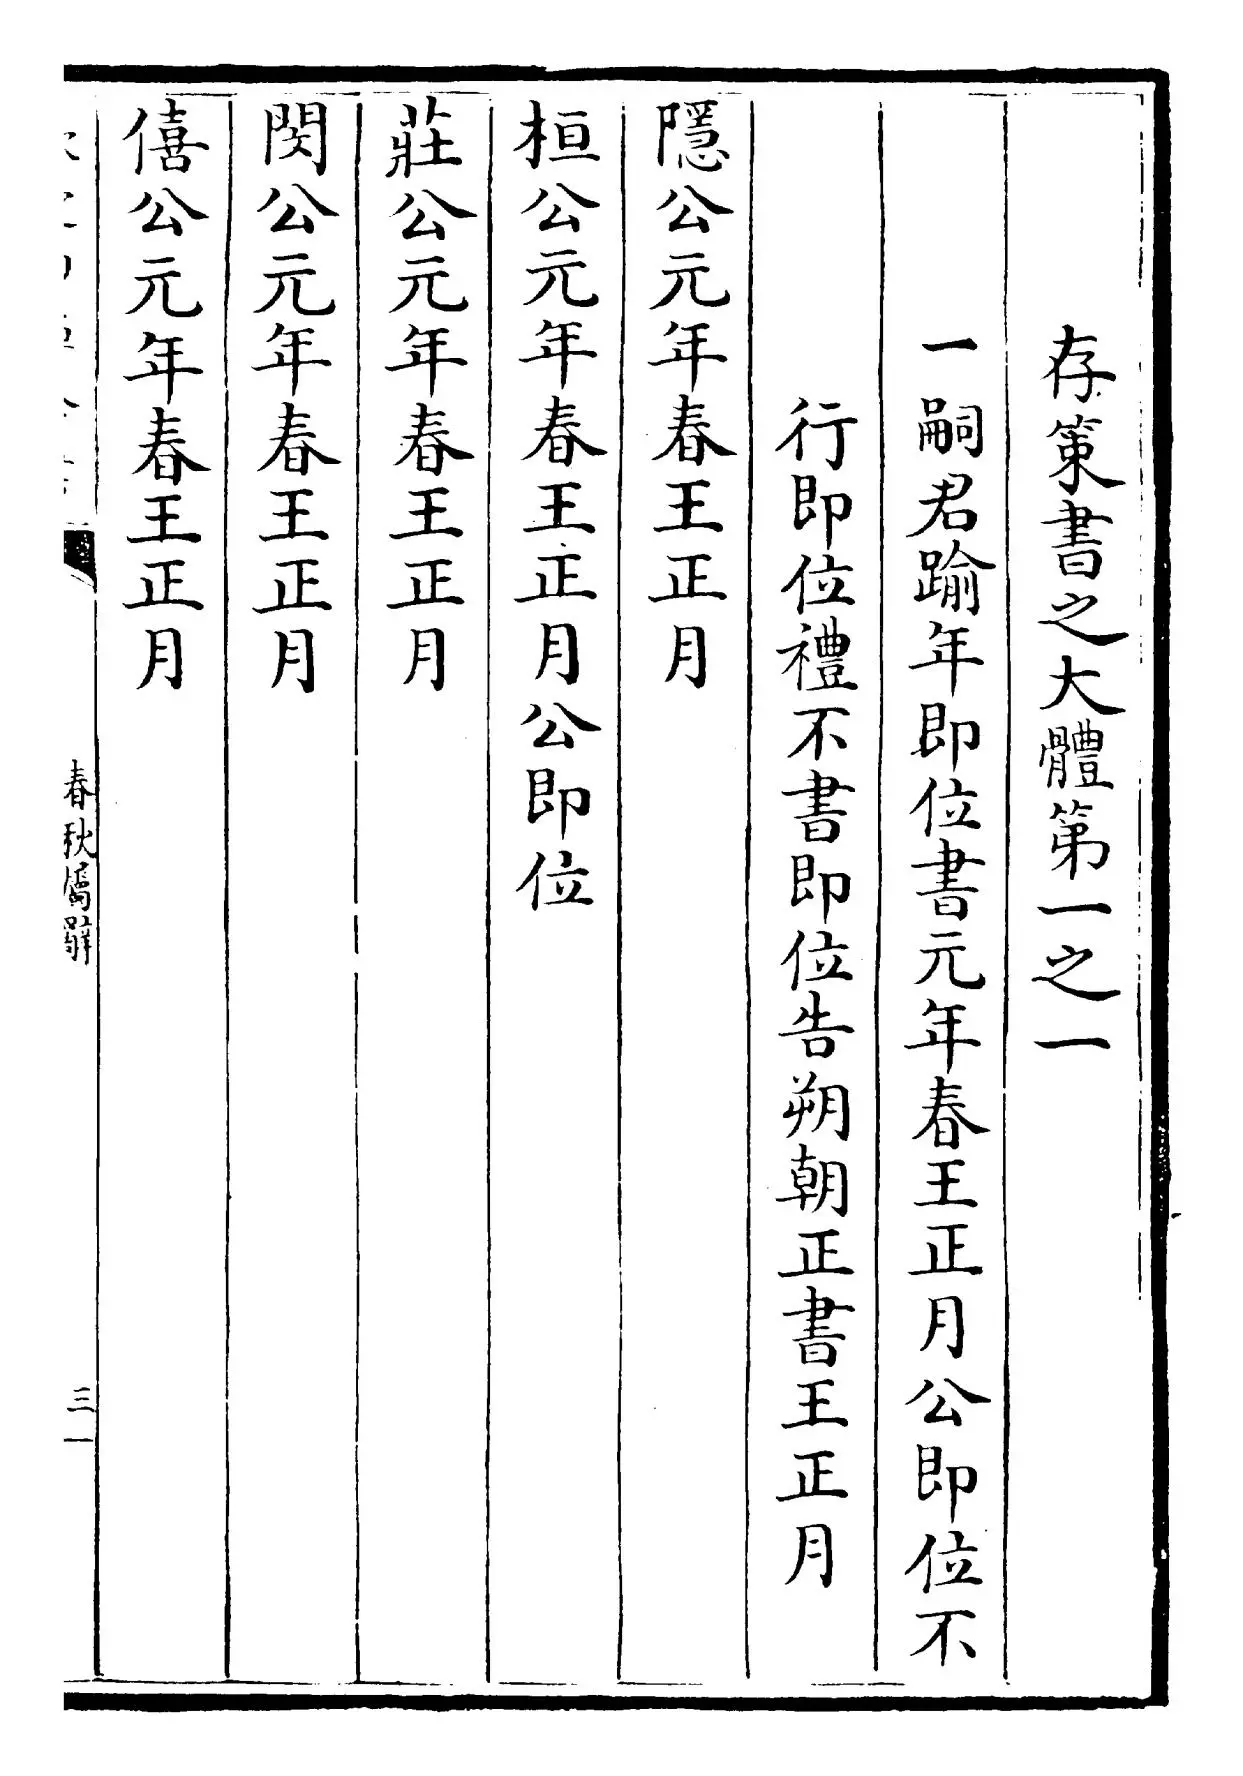 存策書之大體第一之一
一嗣君踰年即位書元年春王正月公即位不
行即位禮不書即位告朔朝正書王正月
隱公元年春王正月
桓公元年春王正月公即位
莊公元年春王正月
閔公元年春王正月
僖公元年春王正月
春秋屬辭
三一